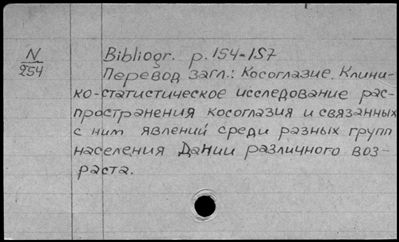 N Bibliogr. p. 154-157
254 Перевод загл.: Косоглазие. Клини-
ко-статистическое исследование рас-
пространения косоглазия и связанных
с ним явлений среди разных групп
населения Дании различного воз-
раста.